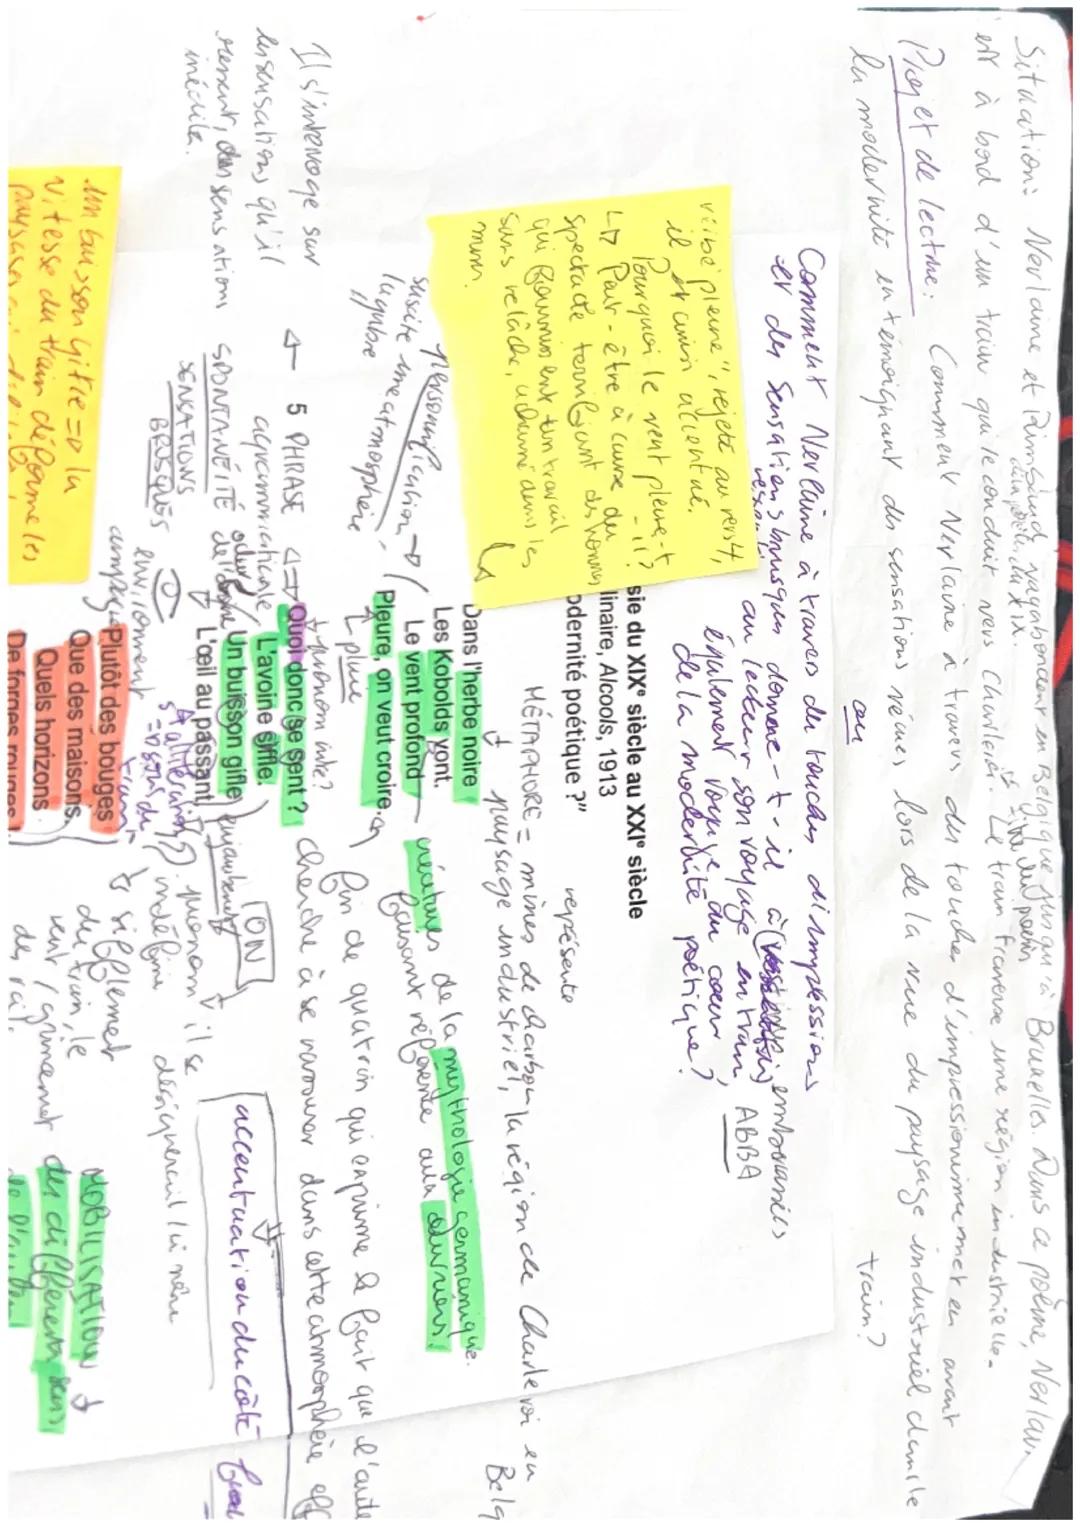 Situation: Verlaine et Rimbaud vagabondent en Belgique jusqu'à Bruxelles. Dans ce poème, Verlain
est à bord d'un train qui le conduit vers Charleroi. Le train traverse une région industrielle.
Projet de lecture: Comment Verlaine à travers des touches d'impressionnisme met en avant
la modernité en témoignant des sensations vécues lors de la vue du paysage industriel dans le
train?
ou
Comment Verlaine à travers des touches d'impressions
et des sensations brusques donne-t-il à
au lecteur son voyage en train,
également voyage du cœur
de la modernité poétique?
ABBA
verbe "pleure", rejeté au vers 4,
il est ainsi accentué.
Pourquoi le vent pleure-t-il?
↳ Peut-être à cause du
spectacle terrifiant des hommes
qui fournissent un travail
sans relâche, acharné dans les
mines.
sie du XIXe siècle au XXIe siècle
linaire, Alcools, 1913
odernité poétique ?"
représente
MÉTAPHORE = mines de charbon, la région de Charleroi en
Belg
↓ paysage industriel
Dans l'herbe noire
Les Kobolds vont.
créatures de la mythologie germanique.
faisant référence aux ouvriers.
Le vent profond
Pleure, on veut croire.
personnification →
suscite une atmosphère
lugubre
pluie
fin de quatrain qui exprime le fait que l'aute
cherche à se rassurer dans cette atmosphère eff
pronom inté?
Il s'interroge sur
les sensations qu'il
ressent, des sensations
inédites.
5 PHRASE
Quoi donc se sent ?
L'avoine siffle.
Un buisson gifle
L'œil au passant.
SPONTANÉITÉ
SENSATIONS
BRUSQUES
enjambement
ON
pronom
indéfini
il se
désignerait lui même
accentuation du côté
allitération
train
environnement
↳ sifflement
du train, le
vent / grincement
des rails
MOBILISATION
des différents sens
Plutôt des bouges
Que des maisons.
Quels horizons
De forges rouges !
Un buisson gifle => la
vitesse du train déforme les
paysages